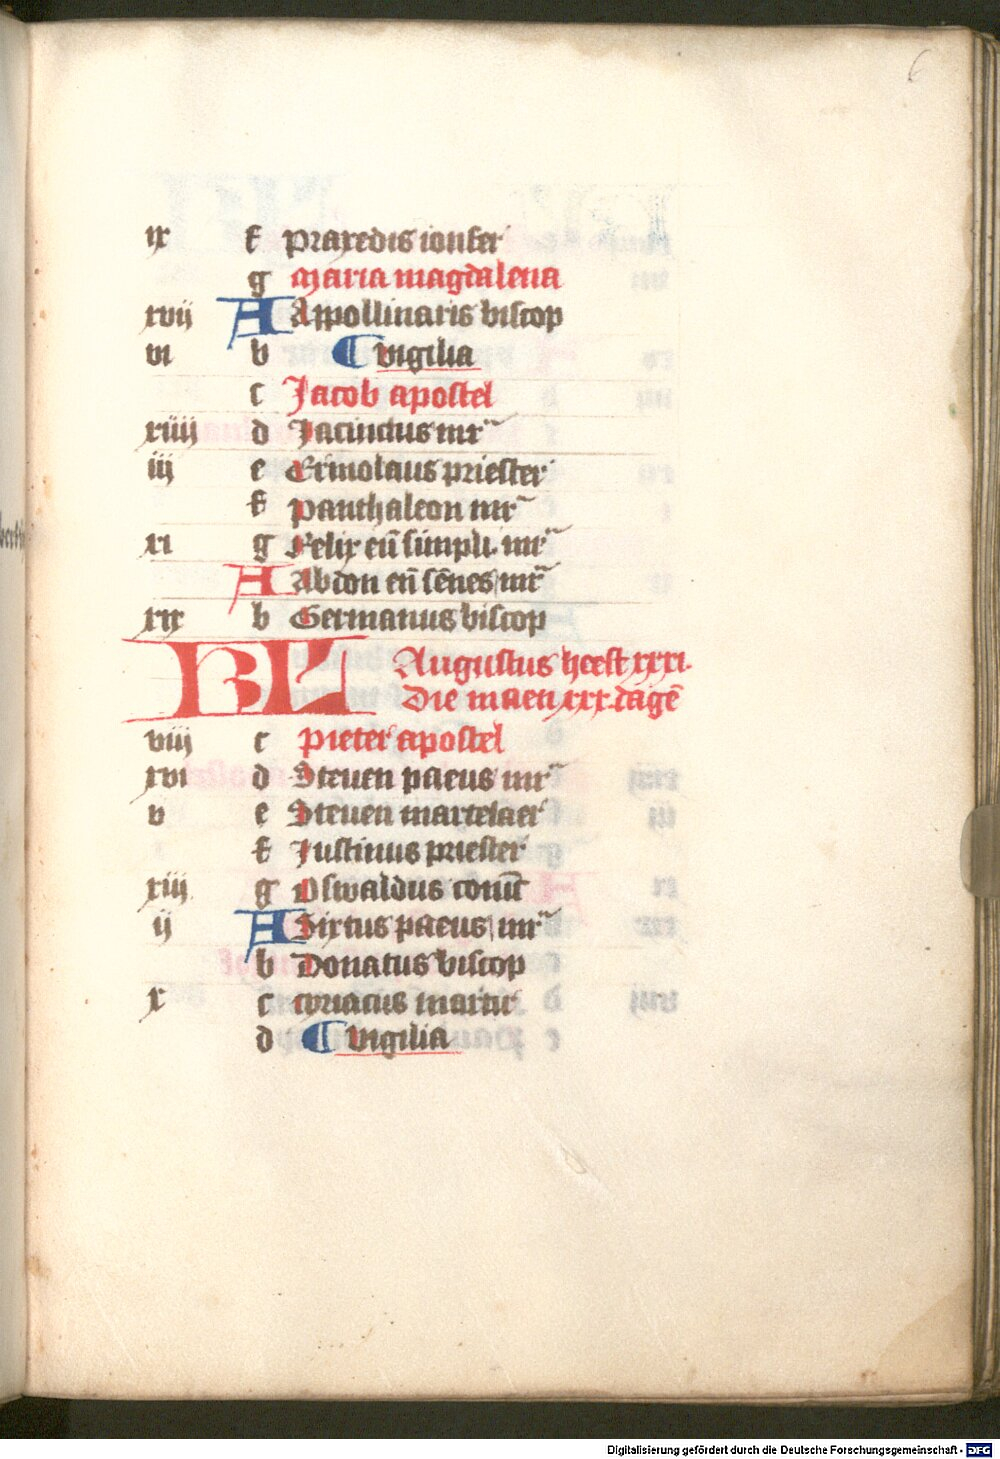 6
ix f Praxedis ionfer
g Maria magdalena
xvij A Appollinaris biscop
vi b vigilia
c Jacob apostel
xiiij d Jacinctus mr̄
iij e Ermolaus priester
f Panthaleon mr̄
xi g Felix eñ simpli. mr̄
A Abdon eñ sēnes mr̄
xix b Germanus biscop
KL Augustus heeft xxxi.
Die maen xxx. dagē
viij c Pieter apostel
xvi d Steuen paeus mr̄
v e Steuen martelaer
f Justinus priester
xiij g Oswaldus coninc
ij A Sixtus paeus mr̄
b Donatus biscop
x c Cyriacus martir
d vigilia
Digitalisierung gefördert durch die Deutsche Forschungsgemeinschaft - DFG